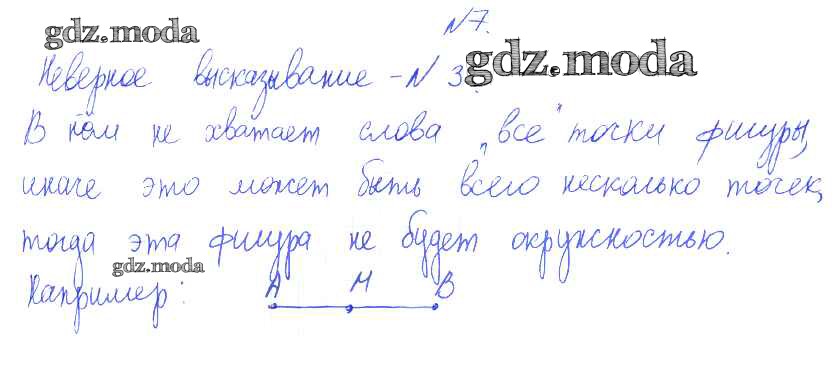 gdz.moda
№7.
gdz.moda
Неверное высказывание - № 3.
В нём не хватает слова „все" точки фигуры,
иначе это может быть всего несколько точек,
тогда эта фигура не будет окружностью.
gdz.moda
Например:
А М В